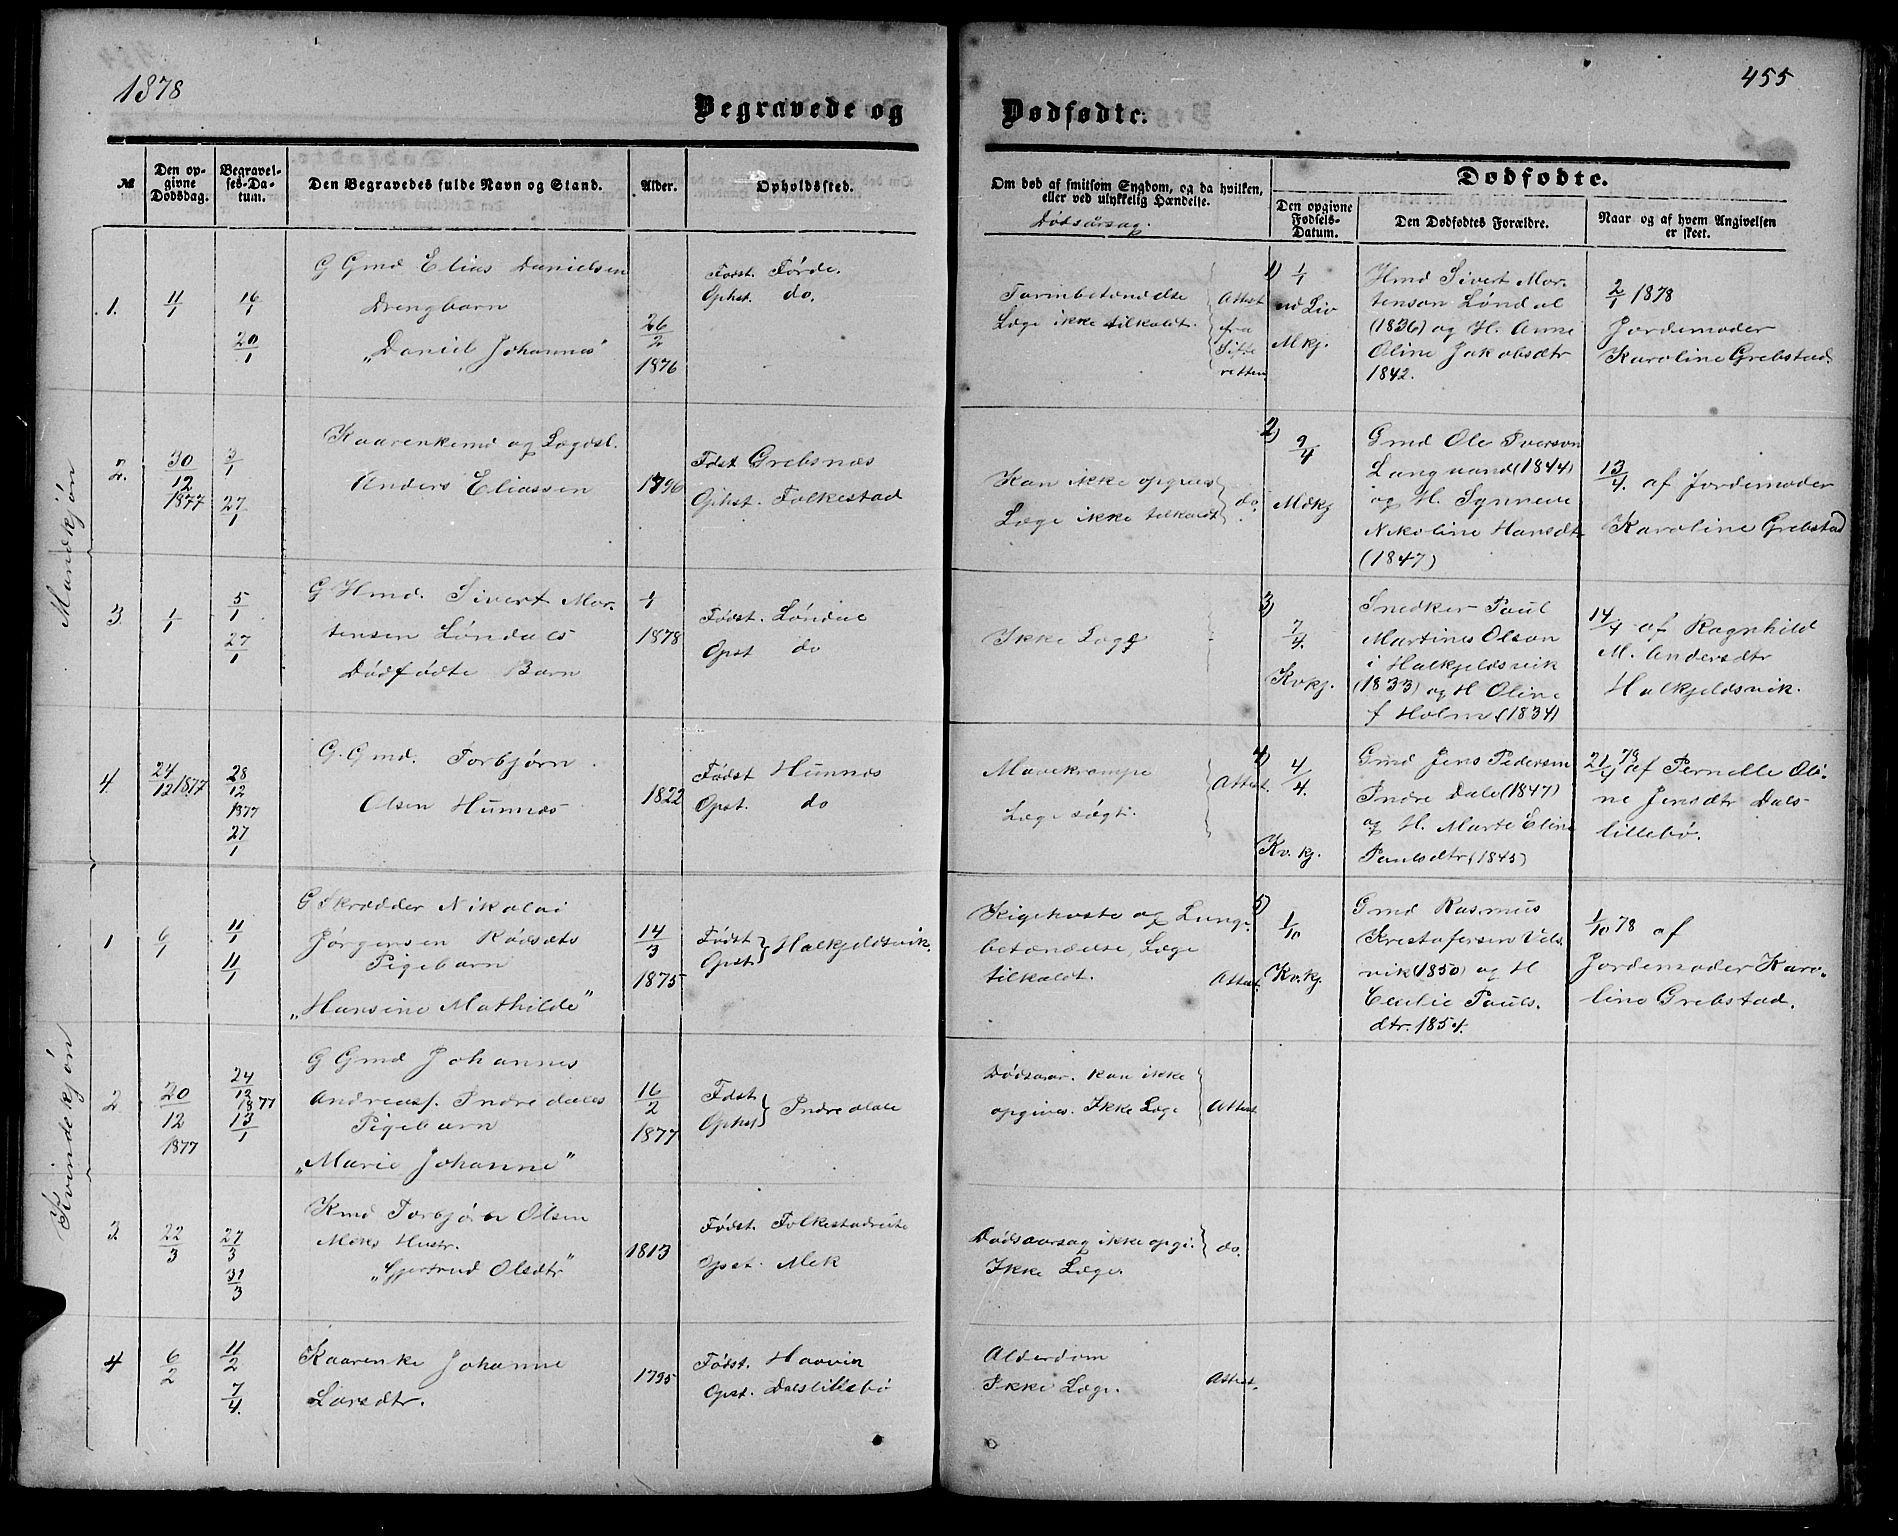 1878
455
Begravede og Dødfødte.
№
Den opgivne Dødsdag.
Begravelses-Datum.
Den Begravedes fulde Navn og Stand.
Alder.
Opholdssted.
Om død af smitsom Sygdom, og da hvilken, eller ved ulykkelig Hændelse.
Dødsårsag.
Dødfødte.
Den opgivne Fødsels-Datum.
Den Dødfødtes Forældre.
Naar og af hvem Angivelsen er skeet.
Mandkjøn
1.
11/1
16/1
20/1
G Gmd Elias Danielsen
Drengbarn
„Daniel Johannes"
26/2
1876
Fødst. Førde.
Ophst. do.
Tarmbetændelse
Læge ikke tilkaldt.
Attest
fra
Skifte
retten
2.
30/12
1877
3/1
27/1
Kaarenkemd og Lægdsl.
Anders Eliassen
1796
Fdst Grebsnæs
Ophst. Folkestad
Kan ikke opgives
Læge ikke tilkaldt
do.
3.
1/1
5/1
27/1
G Hmd. Sivert Mor-
tensen Løndals
Dødfødte Barn
1/1
1878
Fødst. Løndal
Opst do
Ikke Læge
4.
24/12 1877
28/12
1877
27/1
G. Gmd. Torbjørn
Olsen Hunnes
1822
Fødst Hunnes
Opst. do
Mavekrampe
Læge søgt.
Attest.
Kvindekjøn
1
6/1
11/1
11/1
G Skrædder Nikolai
Jørgensen Rødsæts
Pigebarn
„Hansine Mathilde"
14/3
1875
Fødst
Opst.
Halkjeldsvik.
Kigehoste og Lunge-
betændelse, Læge
tilkaldt.
Attest.
2
20/12
1877
24/12
1877
13/1
G Gmd Johannes
Andreasf. Indre dales
Pigebarn
„Marie Johanne"
16/2
1877
Fdst
Ophst
Indre dale
Dødsaar. kan ikke
opgives. Ikke Læge
Attest
3.
22/3
27/3
31/3
Kmd Torbjørn Olsen
Meks Hustr.
„Gjertrud Olsdtr"
1813
Fødst. Folkestadreite
Opst. Mek
Dødsaarsag ikke opgi.
Ikke Læge
do.
4
6/2
11/2
7/4.
Kaarenke Johanne
Larsdtr.
1795
Fødst. Haavik
Opst. Dalslillebø
Alderdom
Ikke Læge.
Attest.
1)
1/1
ud Liv
Mkj.
Hmd Sivert Mor-
tenson Løndal
(1836) og H. Anne
Oline Jakobsdtr
1842.
2/1 1878
Jordemoder
Karoline Grebstad
2)
9/4
Mdkj
Gmd Ole Iverson
Langvand (1844)
og H. Synneve
Nikoline Hansdtr
(1847)
13/4. af Jordemoder
Karoline Grebstad
3)
7/4.
Kvkj.
Snedker Paul
Martines Olson
i Halkjeldsvik
(1833) og H Oline
f Holm (1834)
14/4 af Ragnhild
M. Andersdtr
Halkjeldsvik.
4)
4/4.
Kv. kj.
Gmd Jens Pedersen
Indre Dale (1847)
og H. Marte Eline
Paulsdtr (1845)
21/4 78 af Pernelle Oli-
ne Jensdtr Dals-
lillebø.
5)
1/10
Kv. kj
Gmd Rasmus
Kristofersen Vels-
vik (1850) og H
Cecilie Pauls-
dtr. 1854.
1/10 78 af
Jordemoder Karo-
line Grebstad.